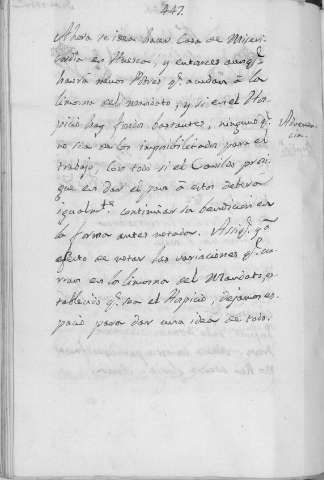 447.
Ahora se idea hacer Casa de Miseri-
cordia en Huesca, y entonces aunq.e
habrá menos Pobres q.e acudan á la
limosna del mandato; y si en el Hos-
picio hay fondos bastantes, ninguno q.e
no sea de los imposibilitados para el
trabajo, con todo si el Cavildo prosi-
gue en dar el pan á estos deberá
igualm.te continuar la bendicion en
la forma antes notada. Assi q.e p.a
efecto de notar las variaciones q.e ocu-
rran en la limosna del Mandato, es-
tablecido q.e sea el Hospicio, dejamos es-
pacio para dar una idea de todo.
Adverten-
cia.